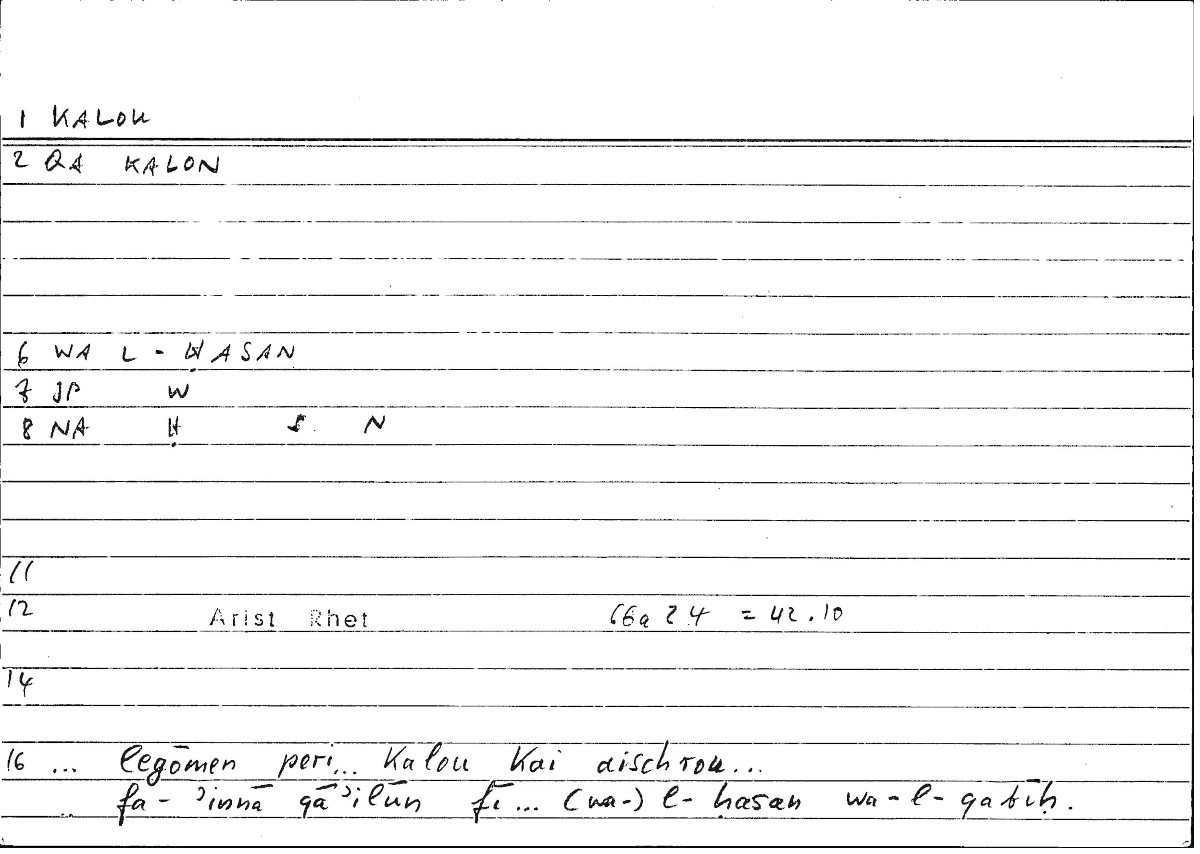 1 KALOU
2 QA KALON
6 WA L - ḤASAN
7 JP W
8 NA Ḥ S N
11
12 Arist Rhet 66a24 = 42.10
14
16 ... legōmen peri... kalou kai aischrou...
fa- ʾinnā qāʾilūn fī... (wa-) l- ḥasan wa-l- qabīḥ.